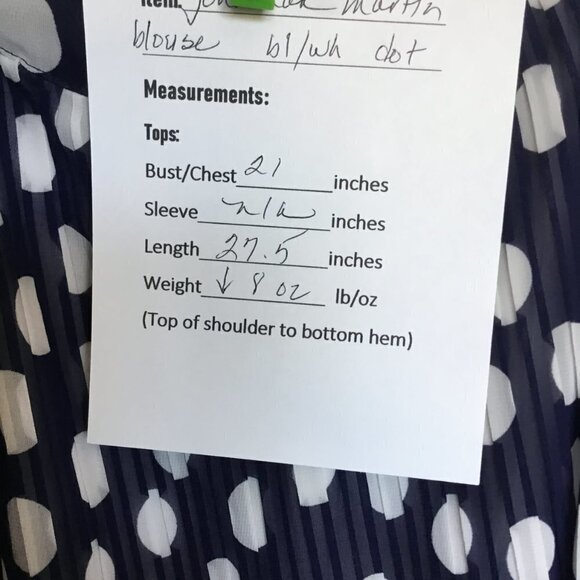 Item: martin
blouse bl/wh dot
Measurements:
Tops:
Bust/Chest 21 inches
Sleeve n/a inches
Length 27.5 inches
Weight ↓ 8 oz lb/oz
(Top of shoulder to bottom hem)